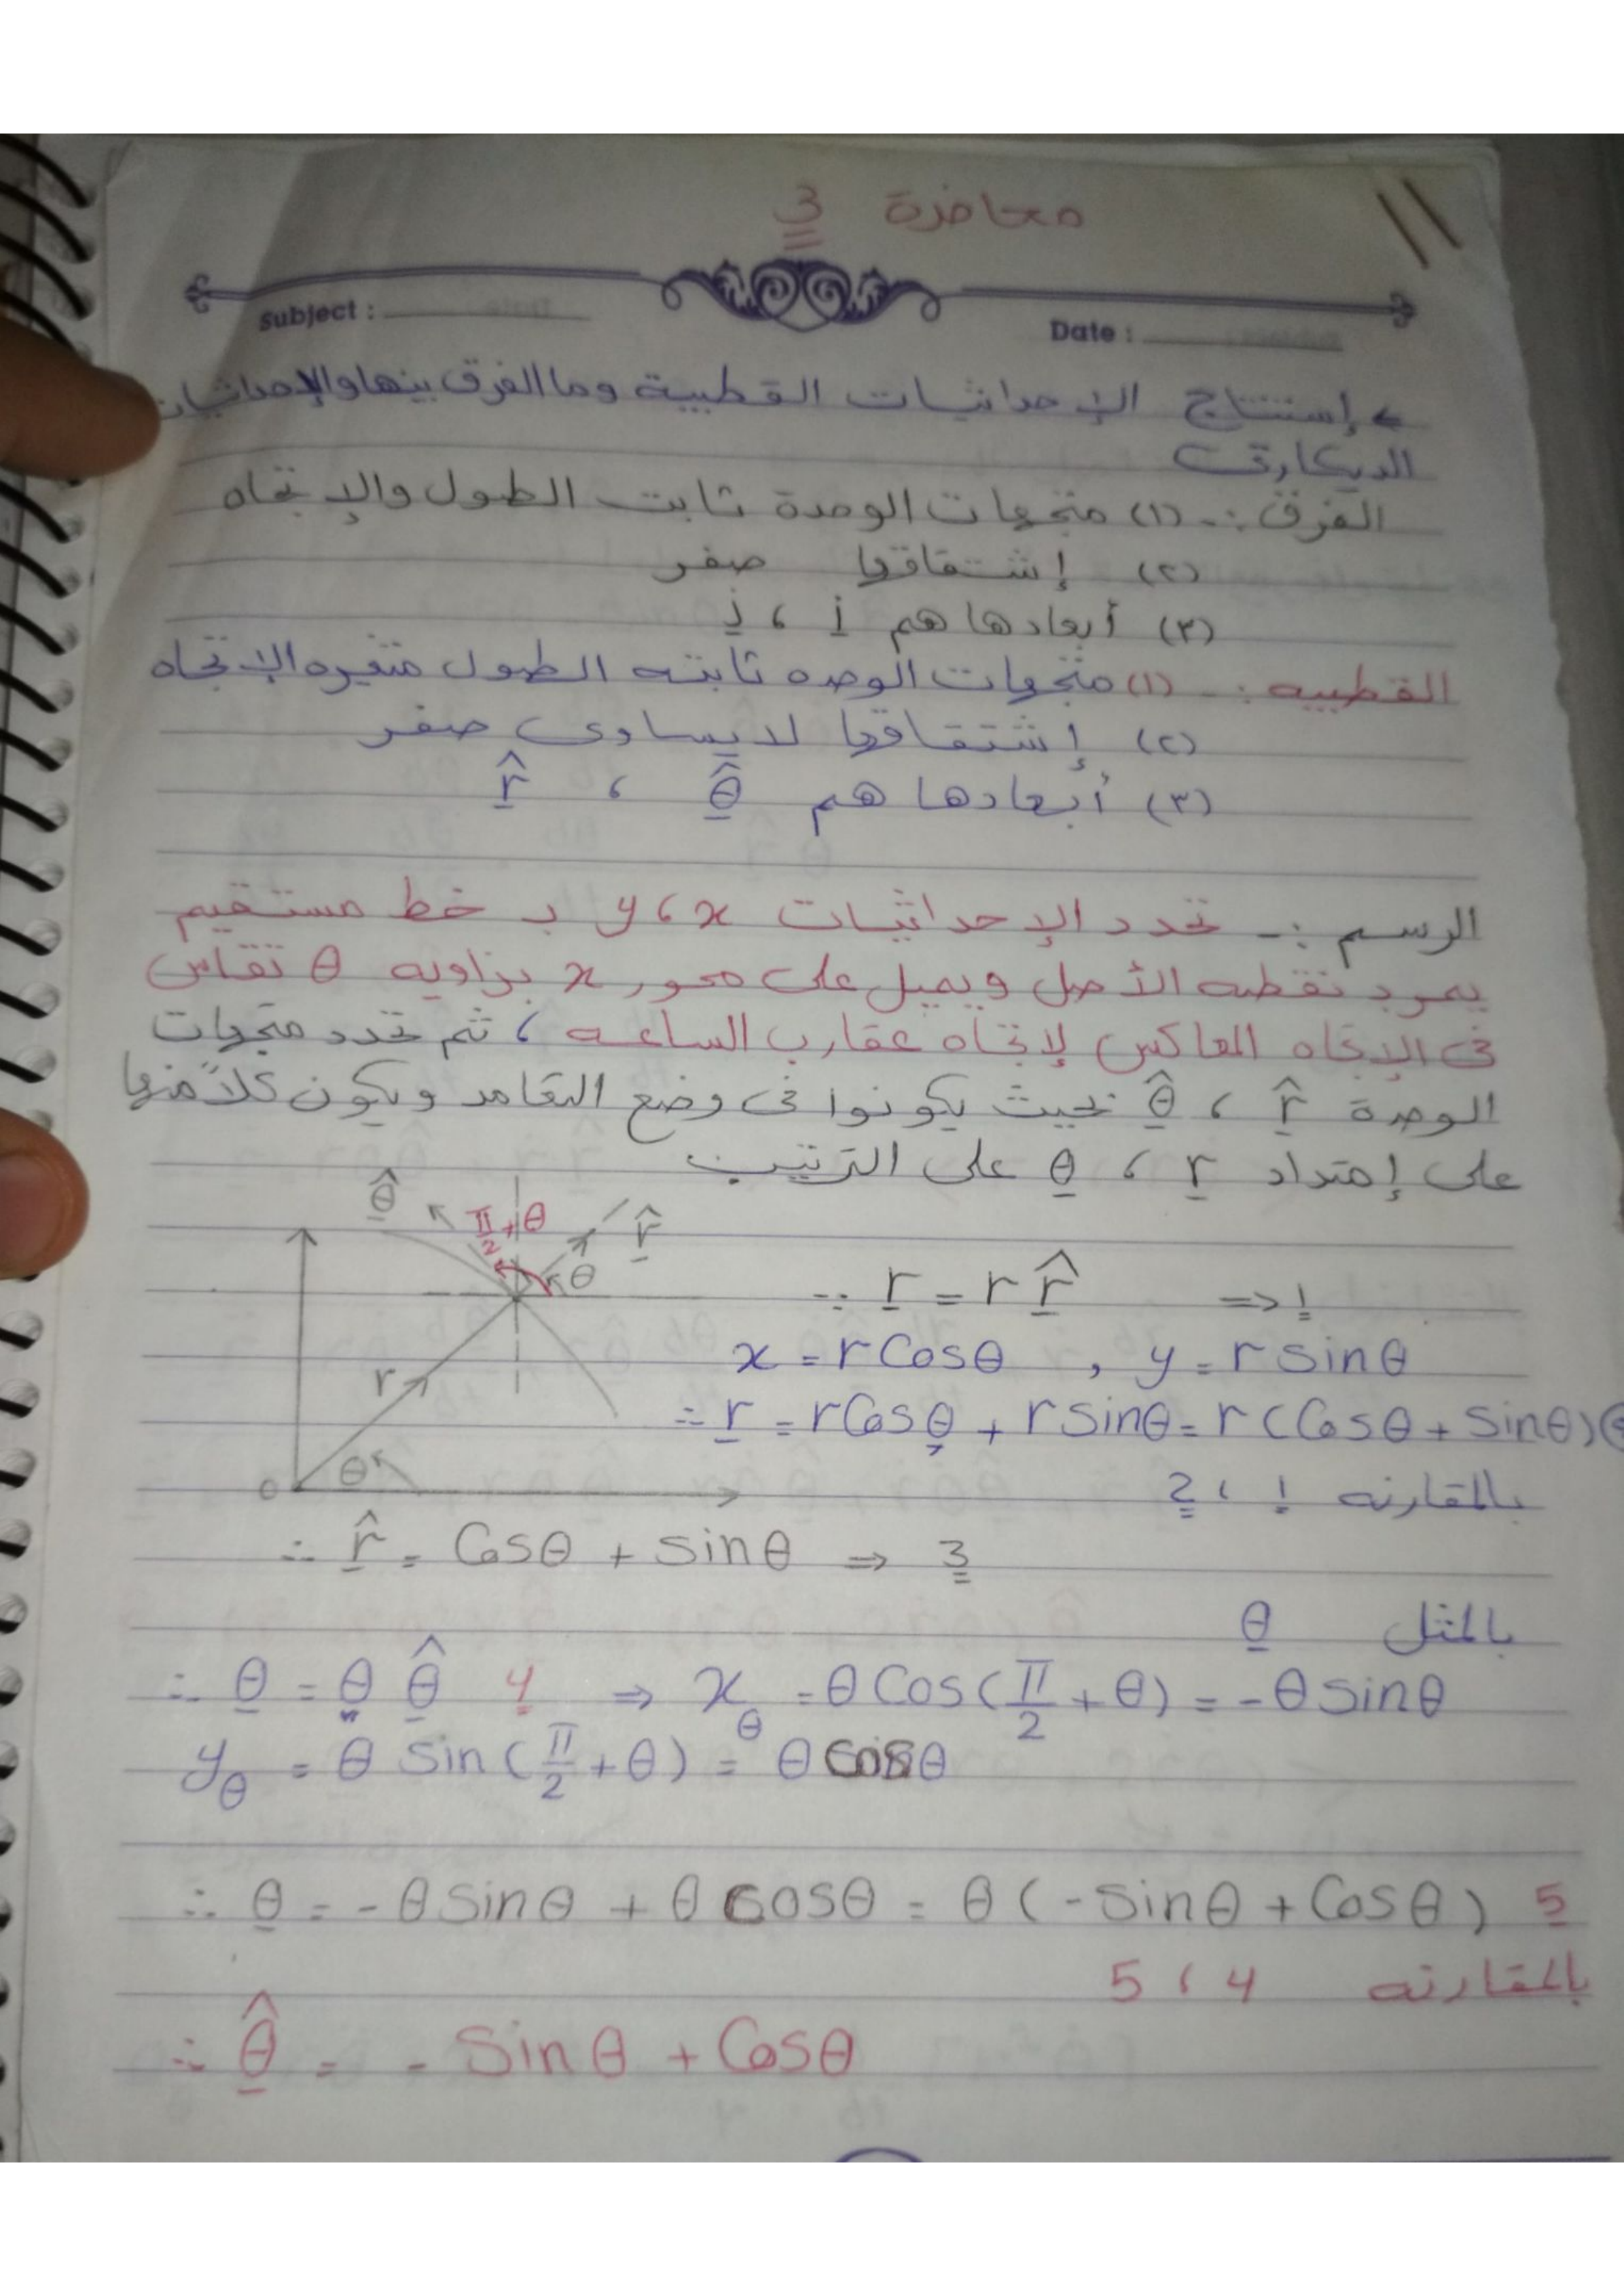 محاضرة 3
Subject :
Date :
إستنتاج الإحداثيات القطبية وما الفرق بينها والإحداثيات
الديكارتى
الفرق :- (١) متجهات الوحدة ثابت الطول والإتجاه
(٢) إشتقاقها صفر
(٣) أبعادها هم i ، j
القطبيه :- (١) متجهات الوحده ثابته الطول متغيره الإتجاه
(٢) إشتقاقها لا يساوى صفر
(٣) أبعادها هم θ̂ ، r̂
الرسم :- تحدد الإحداثيات x ، y بـ خط مستقيم
يمر بنقطه الأصل ويميل على محور x بزاويه θ تقاس
فى الإتجاه المعاكس لإتجاه عقارب الساعه ، ثم تحدد متجهات
الوحدة r̂ ، θ̂ بحيث يكونوا فى وضع التعامد ويكون كلاً منها
على إمتداد r ، θ على الترتيب
θ̂ π/2 + θ r̂
θ
r
θ
o
∵ r = r r̂ ⇒ 1
x = r Cosθ , y = r sinθ
∴ r = r Cosθ + r sinθ = r (Cosθ + sinθ)
بالمقارنه 1 ، 2
∴ r̂ = Cosθ + sinθ ⇒ 3
بالمثل θ
∴ θ = θ θ̂ 4 ⇒ xθ = θ Cos(π/2 + θ) = - θ sinθ
yθ = θ sin(π/2 + θ) = θ cosθ
∴ θ = - θ sinθ + θ cosθ = θ (- sinθ + Cosθ) 5
بالمقارنه 4 ، 5
∴ θ̂ = - sinθ + Cosθ